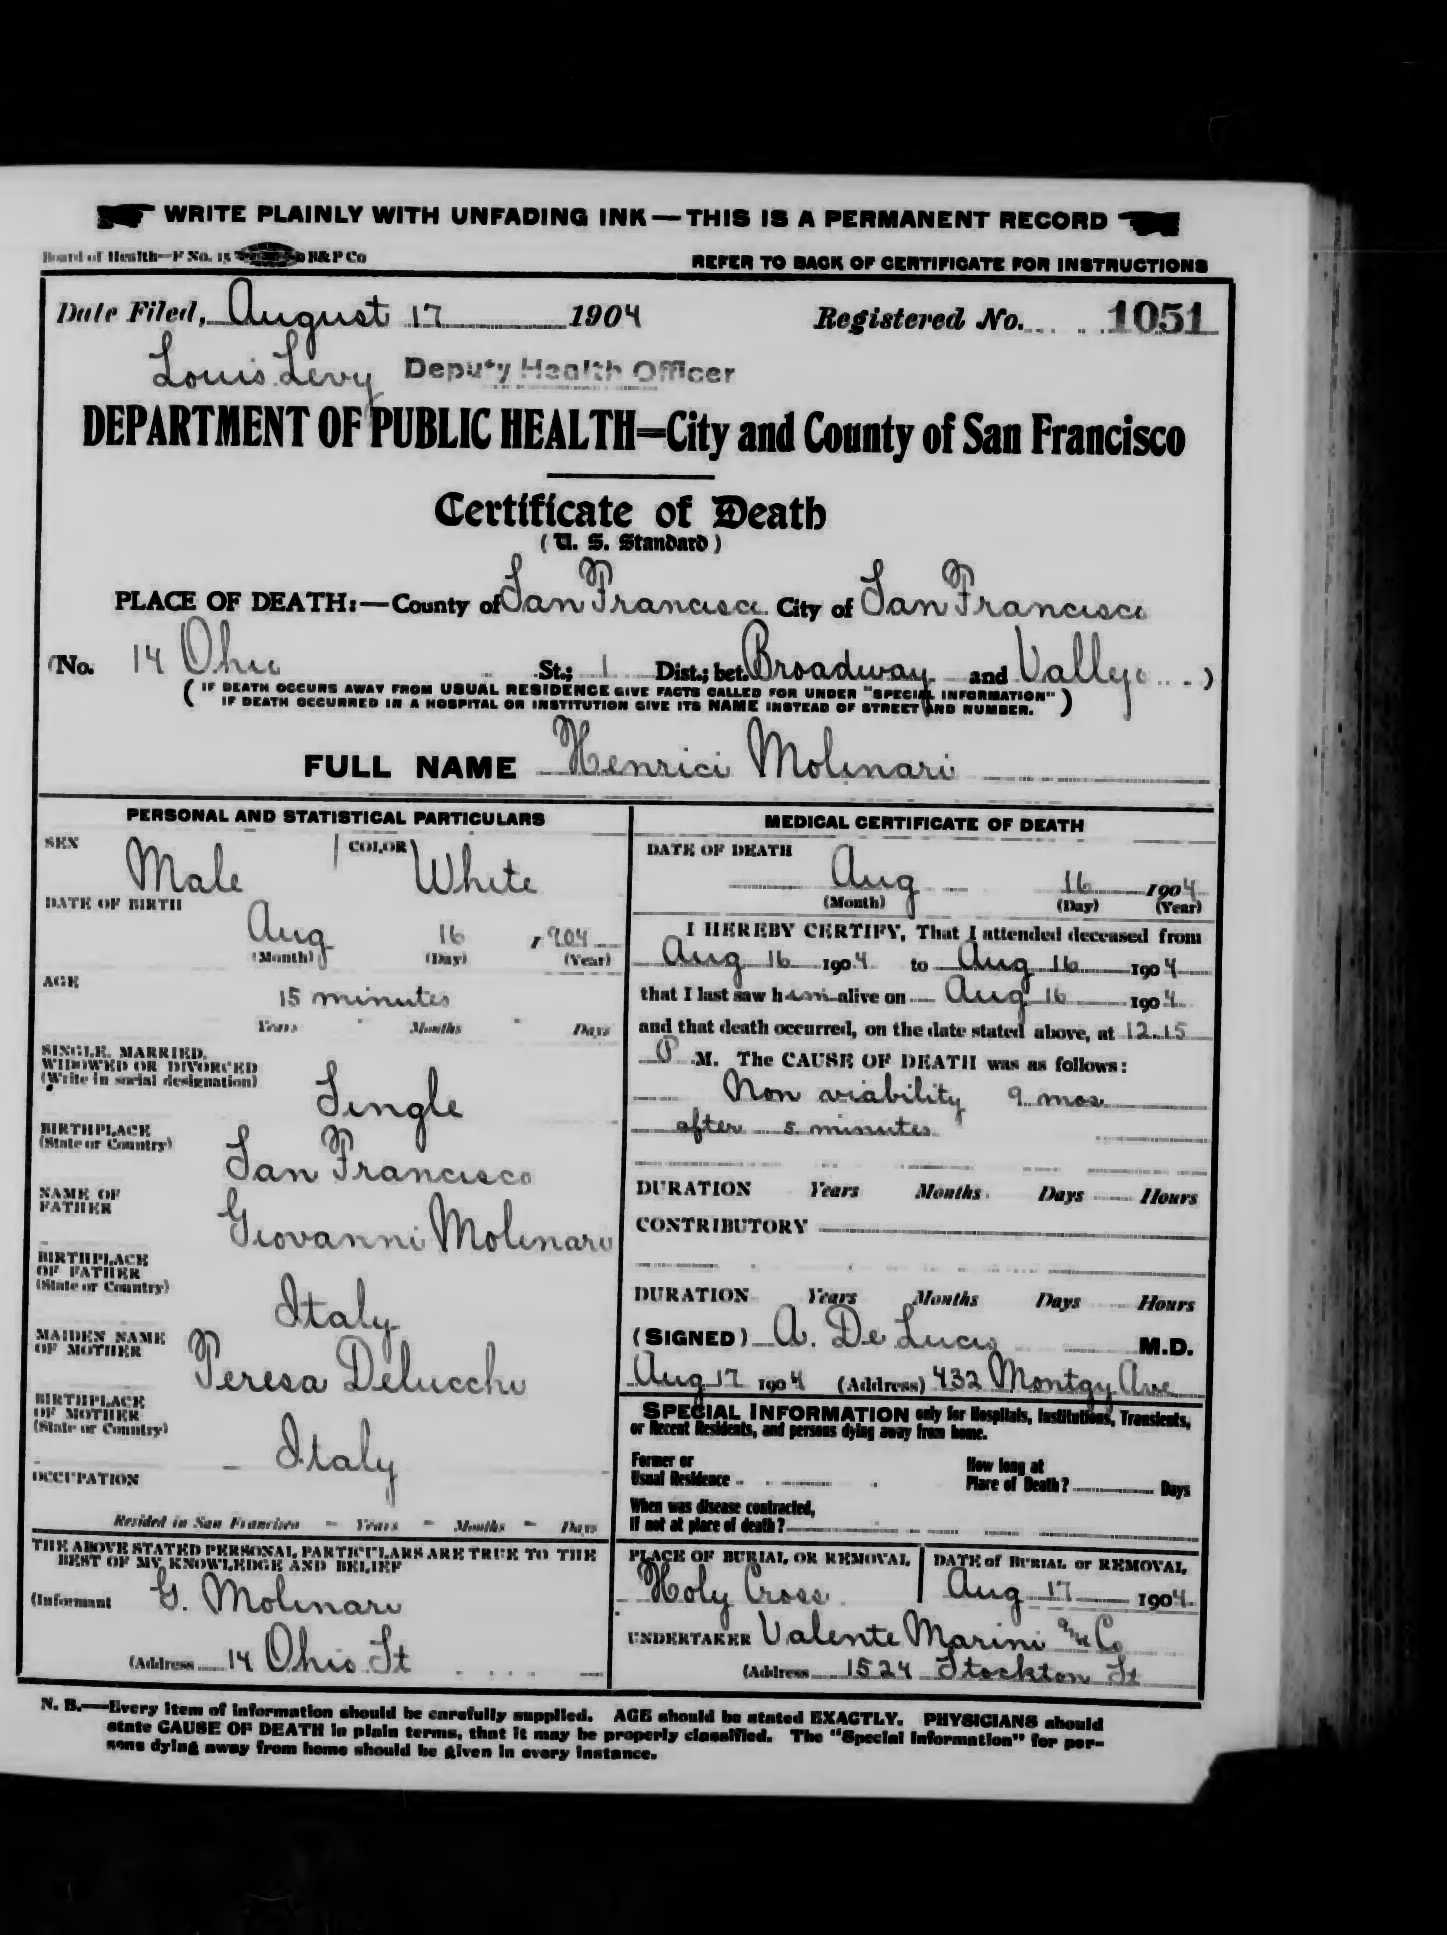 WRITE PLAINLY WITH UNFADING INK — THIS IS A PERMANENT RECORD
Board of Health—F No. 15 B&P Co
REFER TO BACK OF CERTIFICATE FOR INSTRUCTIONS
Date Filed, August 17 1904 Registered No. 1051
Louis Levy Deputy Health Officer
DEPARTMENT OF PUBLIC HEALTH=City and County of San Francisco
Certificate of Death
( U. S. Standard )
PLACE OF DEATH:—County of San Francisco City of San Francisco
(No. 14 Ohio St.; 1 Dist.; bet. Broadway and Vallejo )
( IF DEATH OCCURS AWAY FROM USUAL RESIDENCE GIVE FACTS CALLED FOR UNDER "SPECIAL INFORMATION"
IF DEATH OCCURRED IN A HOSPITAL OR INSTITUTION GIVE ITS NAME INSTEAD OF STREET AND NUMBER. )
FULL NAME Henrici Molinari
PERSONAL AND STATISTICAL PARTICULARS
SEX Male COLOR White
DATE OF BIRTH
Aug 16 1904
(Month) (Day) (Year)
AGE
15 minutes
Years Months Days
SINGLE, MARRIED,
WIDOWED OR DIVORCED
(Write in social designation)
Single
BIRTHPLACE
(State or Country)
San Francisco
NAME OF
FATHER
Giovanni Molinari
BIRTHPLACE
OF FATHER
(State or Country)
Italy
MAIDEN NAME
OF MOTHER
Teresa Delucchi
BIRTHPLACE
OF MOTHER
(State or Country)
Italy
OCCUPATION
Resided in San Francisco – Years – Months – Days
THE ABOVE STATED PERSONAL PARTICULARS ARE TRUE TO THE
BEST OF MY KNOWLEDGE AND BELIEF
(Informant G. Molinari
(Address 14 Ohio St
MEDICAL CERTIFICATE OF DEATH
DATE OF DEATH
Aug 16 1904
(Month) (Day) (Year)
I HEREBY CERTIFY, That I attended deceased from
Aug 16 1904 to Aug 16 1904
that I last saw him alive on Aug 16 1904
and that death occurred, on the date stated above, at 12.15
P M. The CAUSE OF DEATH was as follows:
Non viability 9 mos
after 5 minutes
DURATION Years Months Days Hours
CONTRIBUTORY
DURATION Years Months Days Hours
(SIGNED) A. De Lucis M.D.
Aug 17 1904 (Address) 432 Montgy Ave
SPECIAL INFORMATION only for Hospitals, Institutions, Transients,
or Recent Residents, and persons dying away from home.
Former or
Usual Residence
How long at
Place of Death? Days
When was disease contracted,
If not at place of death?
PLACE OF BURIAL OR REMOVAL
Holy Cross
DATE of BURIAL or REMOVAL
Aug 17 1904
UNDERTAKER Valente Marini & Co
(Address 1524 Stockton St
N. B.—Every item of information should be carefully supplied. AGE should be stated EXACTLY. PHYSICIANS should
state CAUSE OF DEATH in plain terms, that it may be properly classified. The "Special Information" for per-
sons dying away from home should be given in every instance.